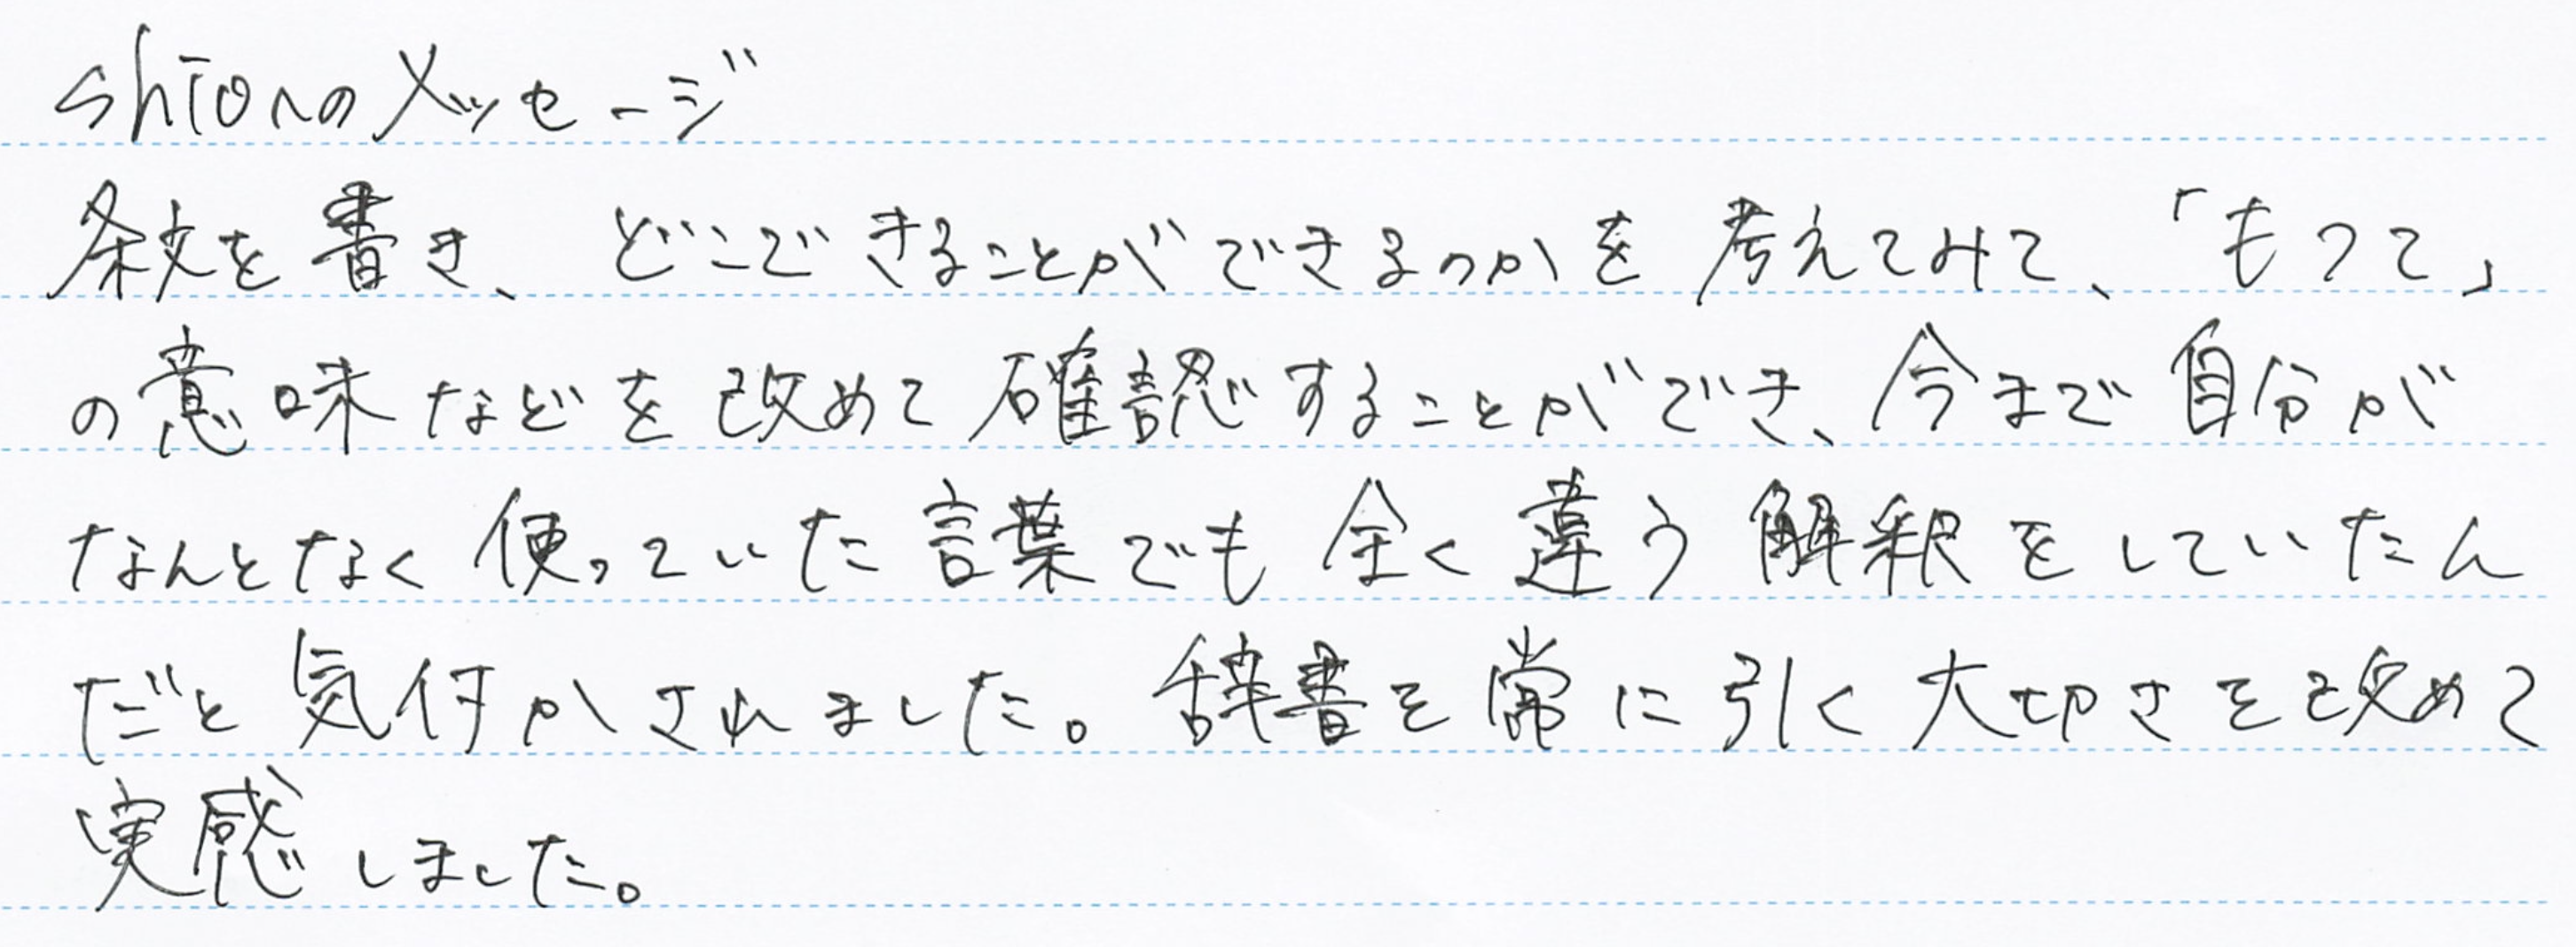 shioへのメッセージ
条文を書き、どこできることができるのかを考えてみて、「もつて」
の意味などを改めて確認することができ、今まで自分が
なんとなく使っていた言葉でも全く違う解釈をしていたん
だと気付かされました。辞書を常に引く大切さを改めて
実感しました。